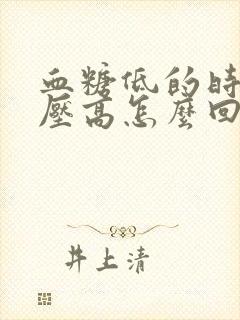 血糖低的時
壓高怎麼回
井上清